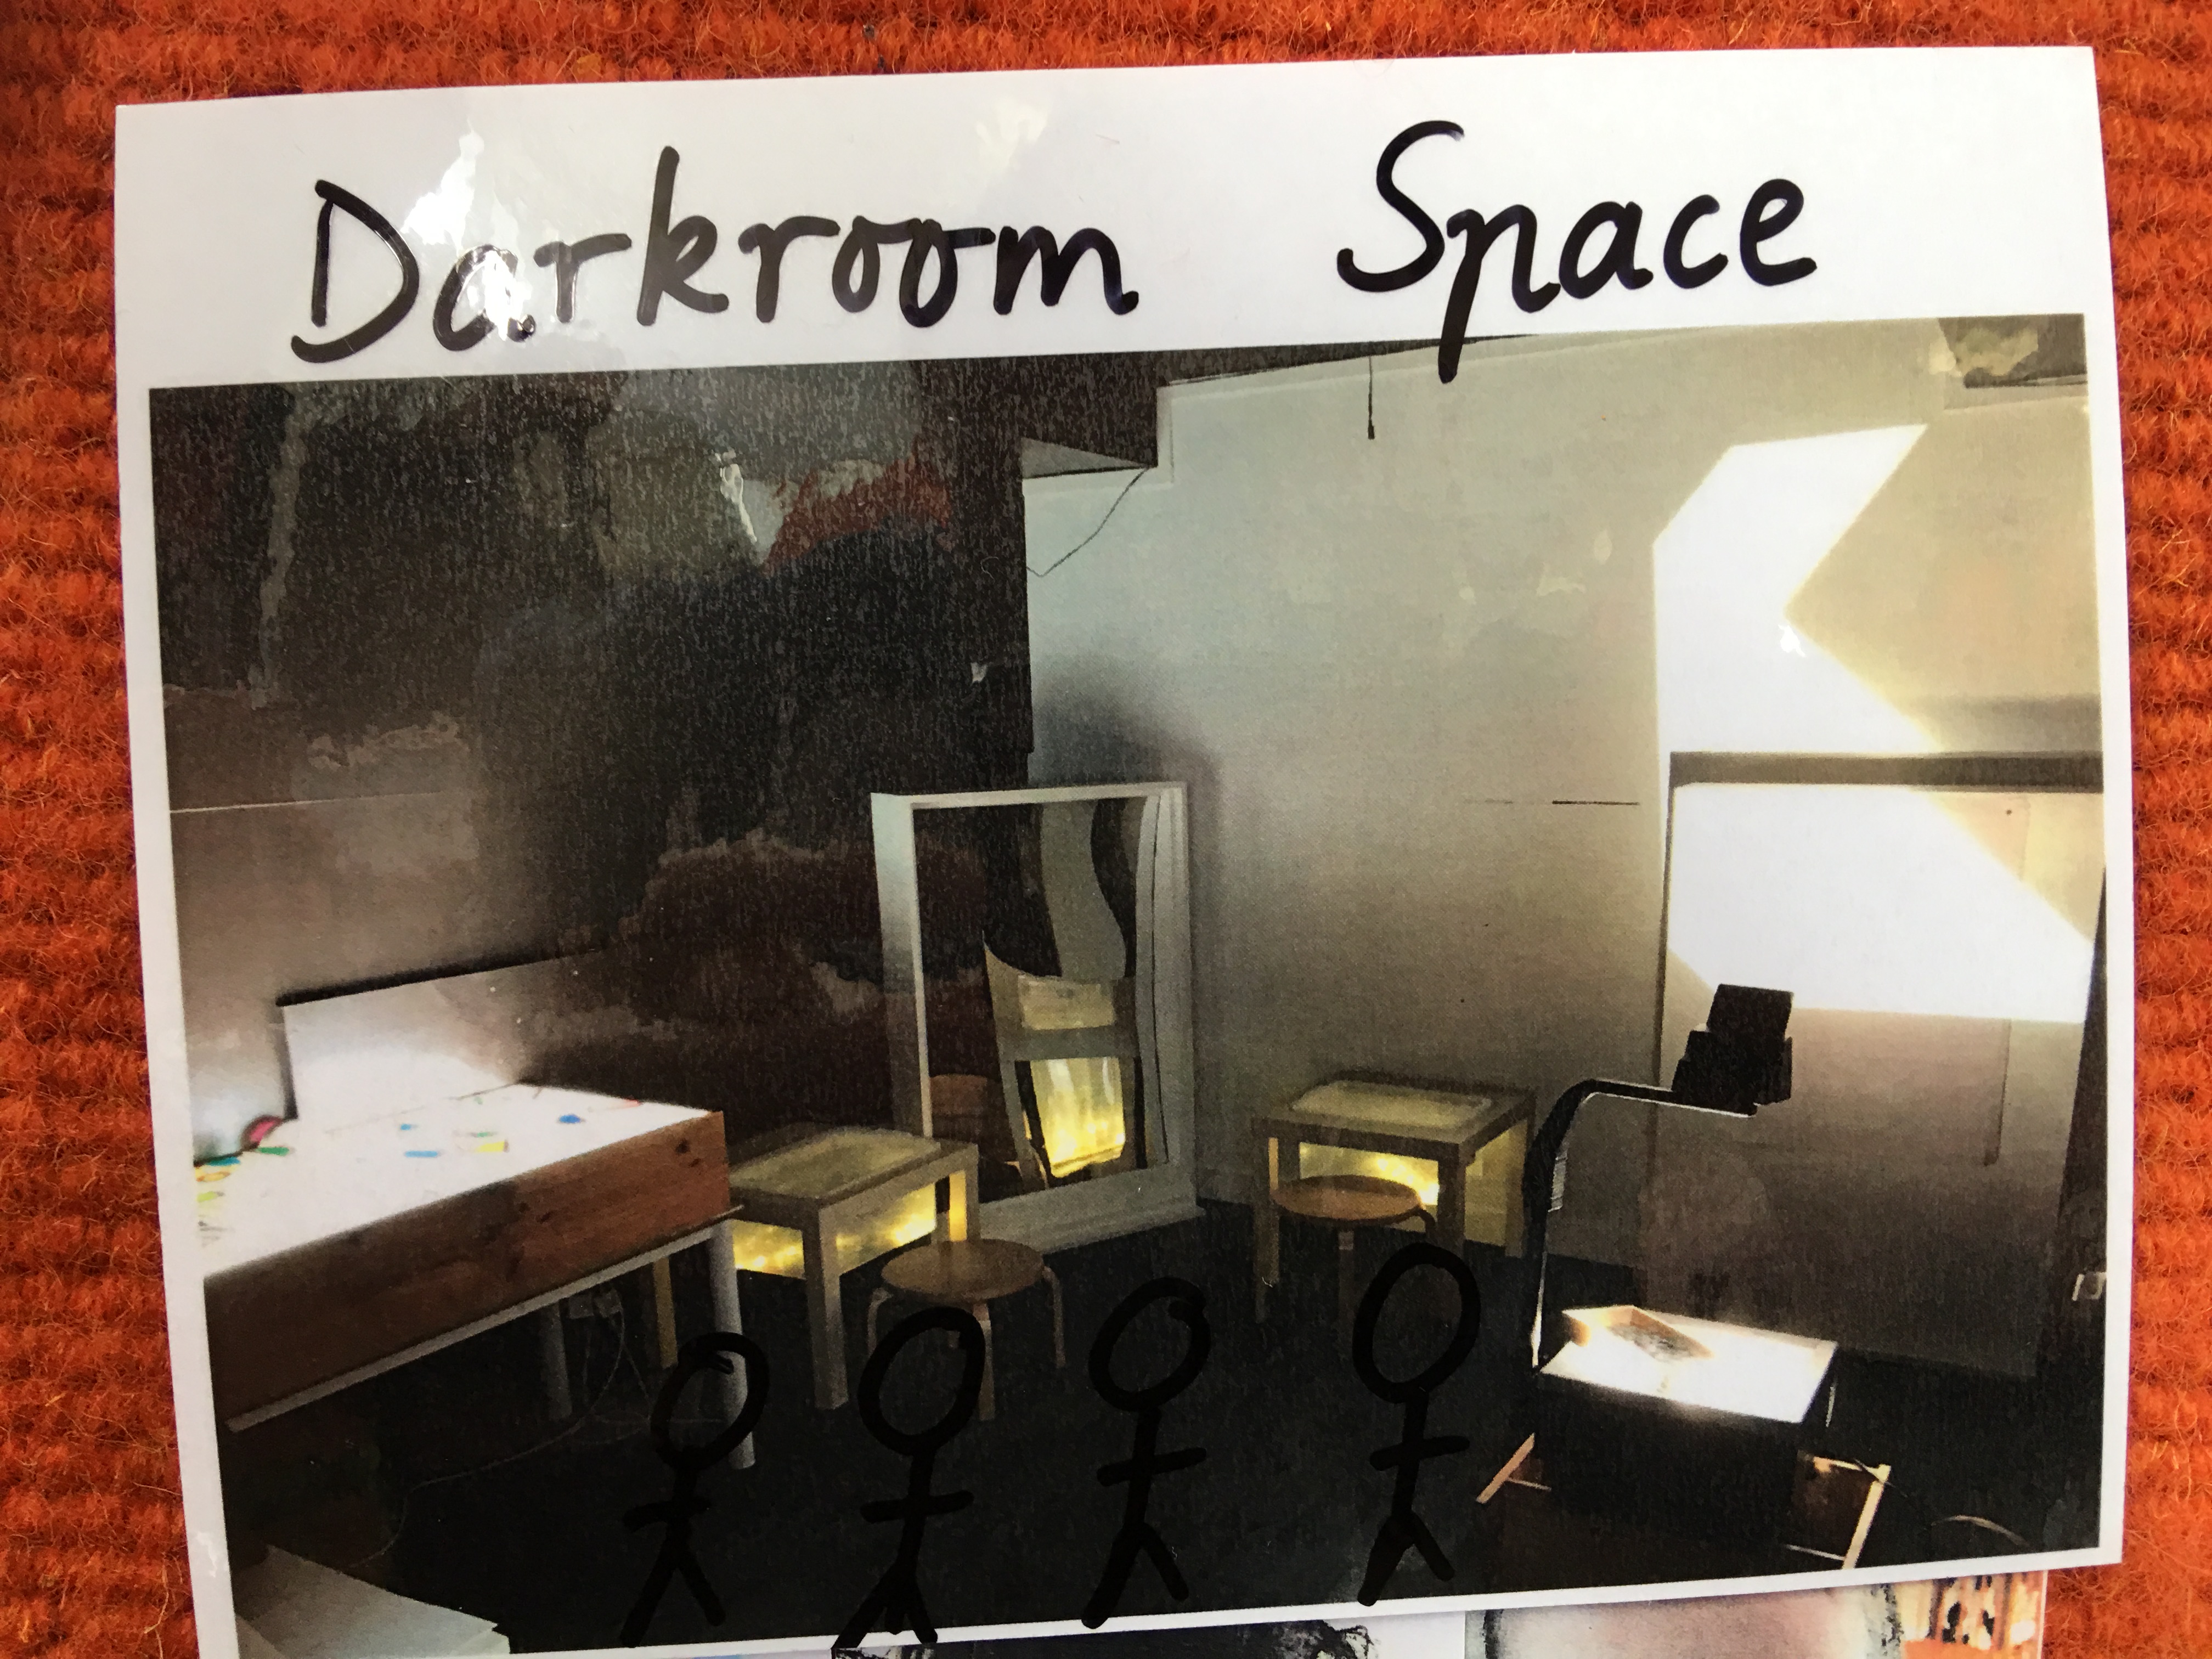 Darkroom Space